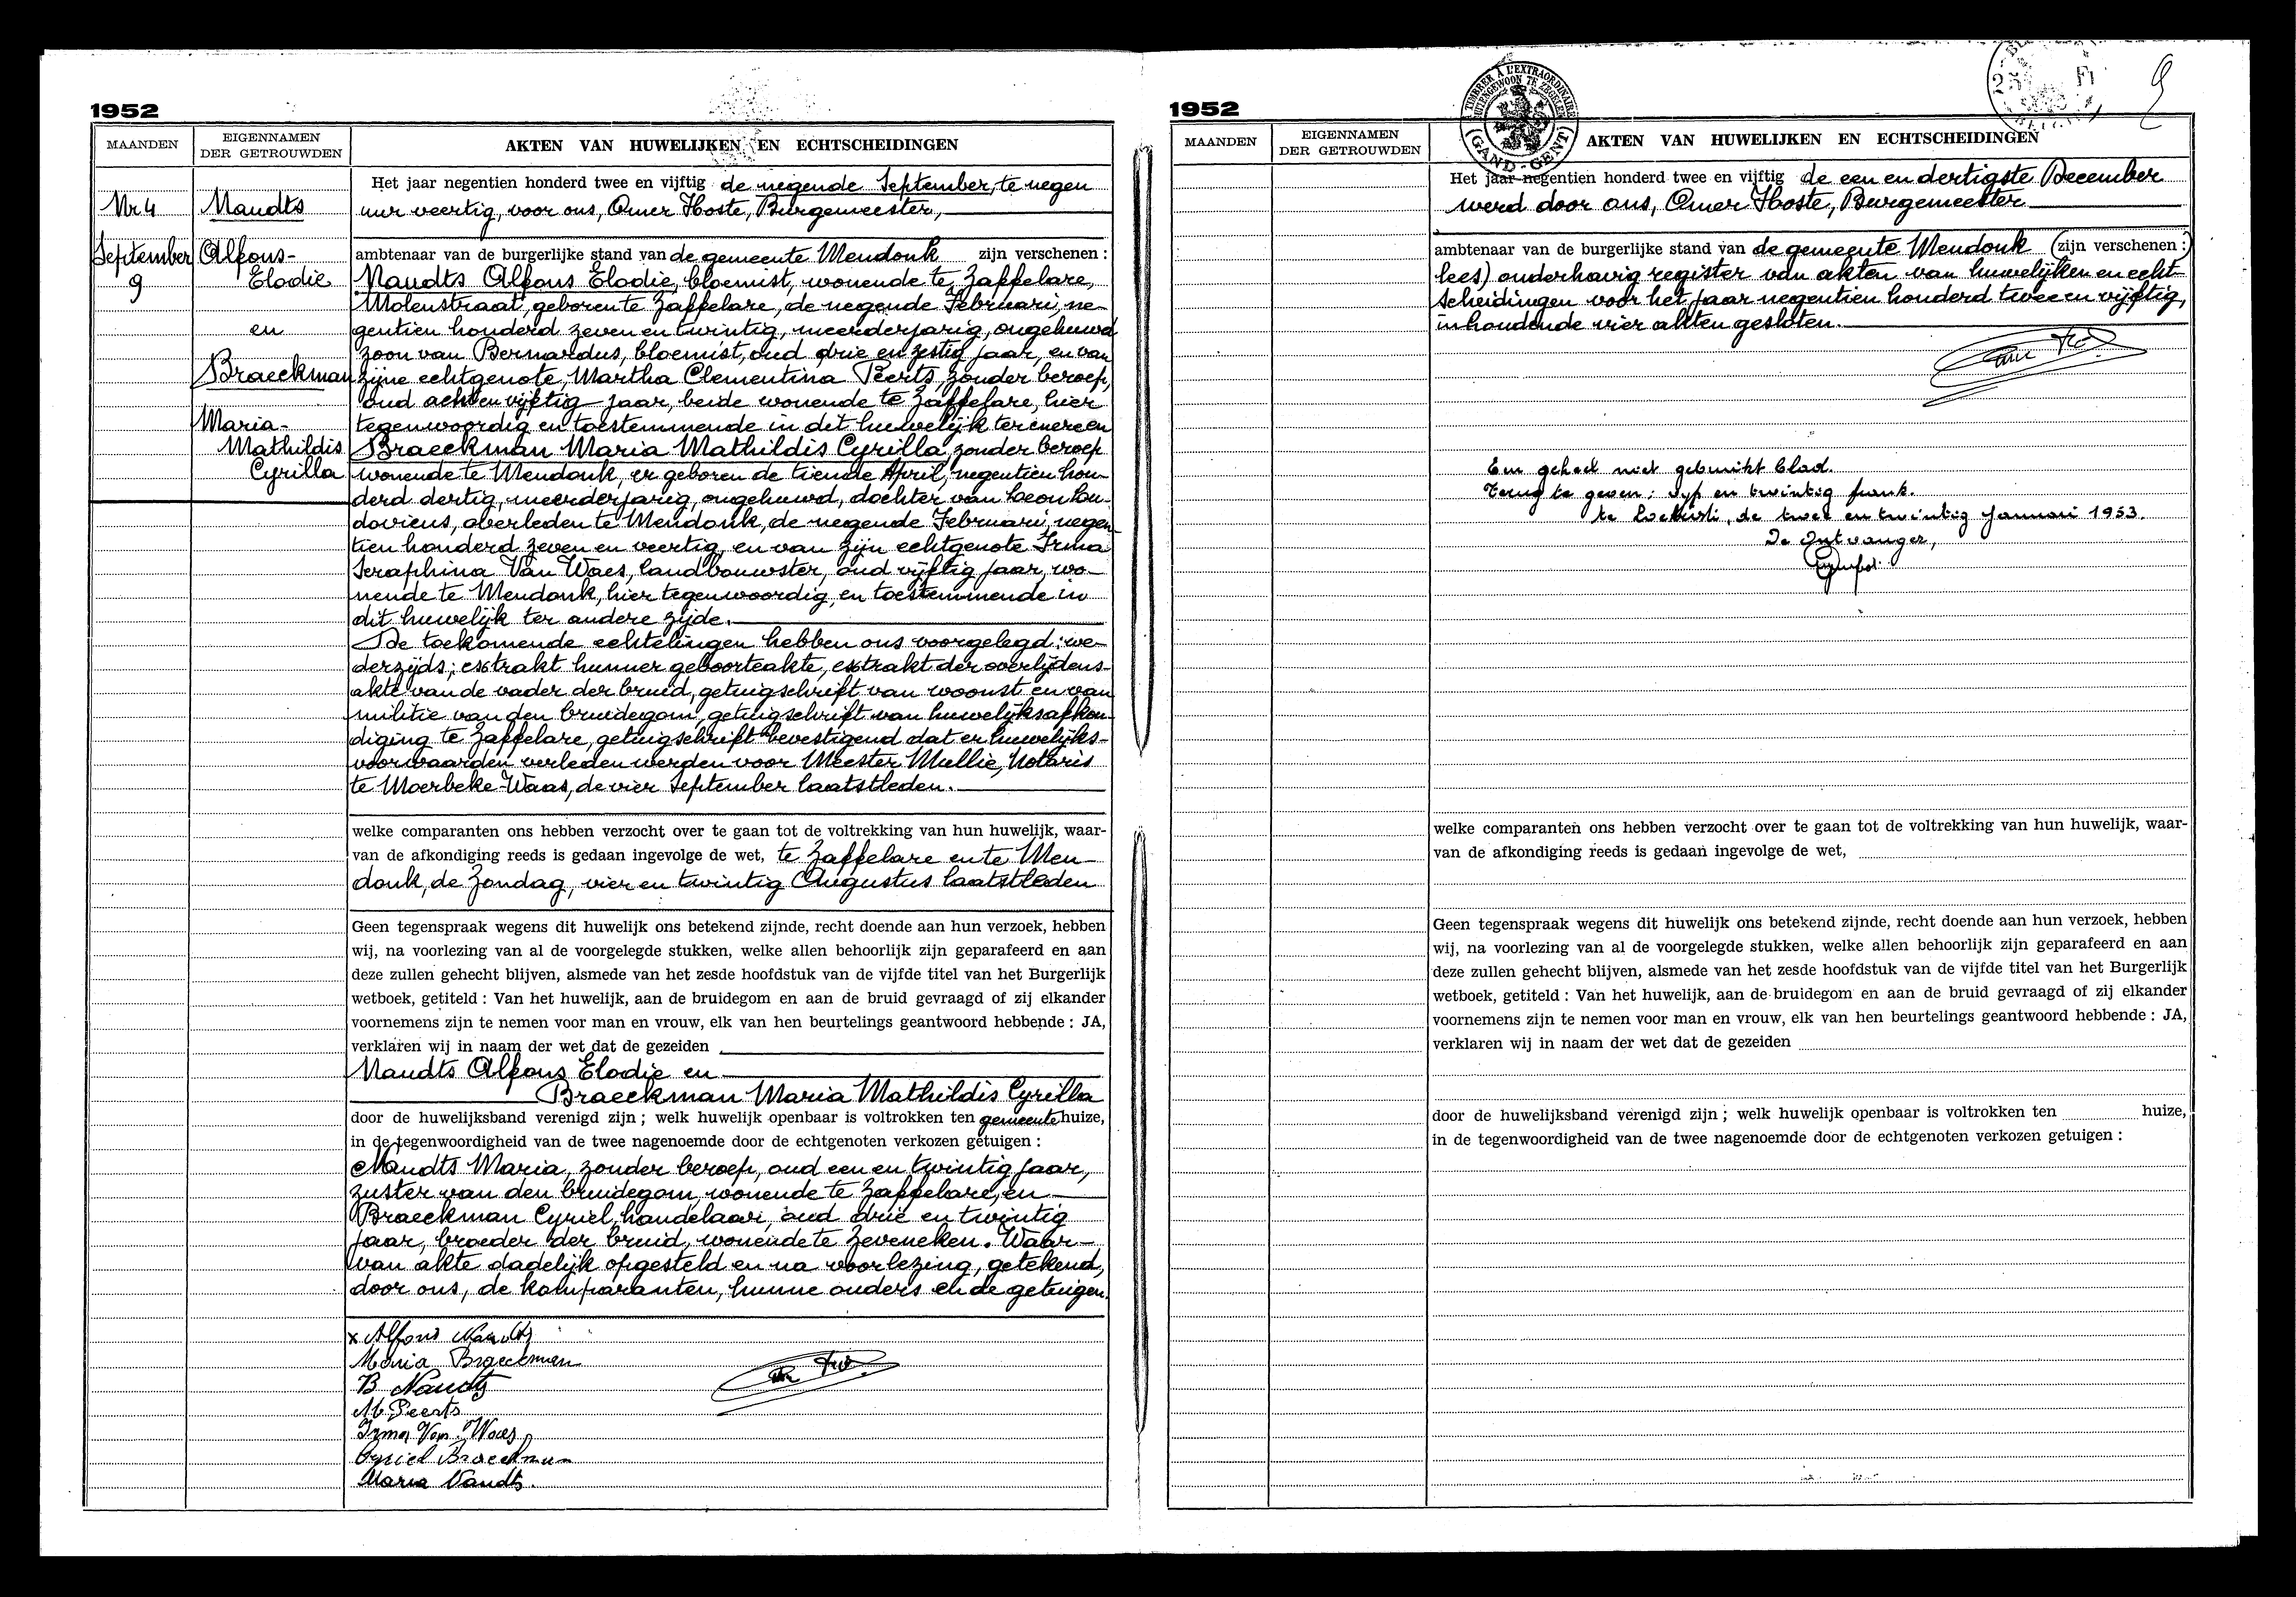 1952
MAANDEN
EIGENNAMEN
DER GETROUWDEN
AKTEN VAN HUWELIJKEN EN ECHTSCHEIDINGEN
Nr 4
September
9
Naudts
Alfons-
Elodie
en
Braeckman
Maria-
Mathildis
Cyrilla
Het jaar negentien honderd twee en vijftig de negende September, te negen
uur veertig, voor ons, Omer Hoste, Burgemeester,
ambtenaar van de burgerlijke stand van de gemeente Mendonk zijn verschenen :
Naudts Alfons Elodie, bloemist, wonende te Zaffelare,
Molenstraat, geboren te Zaffelare, de negende Februari, ne-
gentien honderd zeven en twintig, meerderjarig, ongehuwd
zoon van Bernardus, bloemist, oud drie en zestig jaar, en van
zijne echtgenote, Martha Clementina Peerts, zonder beroep,
oud acht en vijftig jaar, beide wonende te Zaffelare, hier
tegenwoordig en toestemmende in dit huwelijk ter enere en
Braeckman Maria Mathildis Cyrilla, zonder beroep
wonende te Mendonk, er geboren de tiende April, negentien hon-
derd dertig, meerderjarig, ongehuwd, dochter van Leon Lou-
doviens, overleden te Mendonk, de negende Februari, negen-
tien honderd zeven en veertig, en van zijn echtgenote Irma
Seraphina Van Waes, landbouwster, oud vijftig jaar, wo-
nende te Mendonk, hier tegenwoordig, en toestemmende in
dit huwelijk ter andere zijde.
De toekomende echtelingen hebben ons voorgelegd: we-
derzijds; extrakt hunner geboorteakte, extrakt der overlijdens-
akte van de vader der bruid, getuigschrift van woonst en van
militie van den bruidegom, getuigschrift van huwelijksafkon-
diging te Zaffelare, getuigschrift bevestigend dat er huwelijks-
voorwaarden verleden werden voor Meester Mullie, Notaris
te Moerbeke-Waas, de vier September laatstleden.
welke comparanten ons hebben verzocht over te gaan tot de voltrekking van hun huwelijk, waar-
van de afkondiging reeds is gedaan ingevolge de wet, te Zaffelare en te Men-
donk, de Zondag, vier en twintig Augustus laatstleden
Geen tegenspraak wegens dit huwelijk ons betekend zijnde, recht doende aan hun verzoek, hebben
wij, na voorlezing van al de voorgelegde stukken, welke allen behoorlijk zijn geparafeerd en aan
deze zullen gehecht blijven, alsmede van het zesde hoofdstuk van de vijfde titel van het Burgerlijk
wetboek, getiteld : Van het huwelijk, aan de bruidegom en aan de bruid gevraagd of zij elkander
voornemens zijn te nemen voor man en vrouw, elk van hen beurtelings geantwoord hebbende : JA,
verklaren wij in naam der wet dat de gezeiden
Naudts Alfons Elodie en
Braeckman Maria Mathildis Cyrilla
door de huwelijksband verenigd zijn ; welk huwelijk openbaar is voltrokken ten gemeente huize,
in de tegenwoordigheid van de twee nagenoemde door de echtgenoten verkozen getuigen :
Naudts Maria, zonder beroep, oud een en twintig jaar,
zuster van den bruidegom, wonende te Zaffelare, en
Braeckman Cyriel, handelaar, oud drie en twintig
jaar, broeder der bruid, wonende te Zeveneken. Waar-
van akte dadelijk opgesteld en na voorlezing, getekend,
door ons, de komparanten, hunne ouders en de getuigen.
x Alfons Naudts
Maria Braeckman
B Naudts
M Peerts
Irma Van Waes
Cyriel Braeckman
Maria Naudts.
1952
TIMBRE A L'EXTRAORDINAIRE
BUITENGEWOON TE ZEGELEN
GAND-GENT
9
MAANDEN
EIGENNAMEN
DER GETROUWDEN
AKTEN VAN HUWELIJKEN EN ECHTSCHEIDINGEN
Het jaar negentien honderd twee en vijftig de een en dertigste December
werd door ons, Omer Hoste, Burgemeester
ambtenaar van de burgerlijke stand van de gemeente Mendonk (zijn verschenen :
lees) onderhavig register van akten van huwelijken en echt-
scheidingen voor het jaar negentien honderd twee en vijftig,
inhoudende vier akten gesloten.
Een geheel niet gebruikt blad.
Terug te geven : vijf en twintig frank.
te Lochristi, de twee en twintig Januari 1953.
De Ontvanger,
welke comparanten ons hebben verzocht over te gaan tot de voltrekking van hun huwelijk, waar-
van de afkondiging reeds is gedaan ingevolge de wet,
Geen tegenspraak wegens dit huwelijk ons betekend zijnde, recht doende aan hun verzoek, hebben
wij, na voorlezing van al de voorgelegde stukken, welke allen behoorlijk zijn geparafeerd en aan
deze zullen gehecht blijven, alsmede van het zesde hoofdstuk van de vijfde titel van het Burgerlijk
wetboek, getiteld : Van het huwelijk, aan de bruidegom en aan de bruid gevraagd of zij elkander
voornemens zijn te nemen voor man en vrouw, elk van hen beurtelings geantwoord hebbende : JA,
verklaren wij in naam der wet dat de gezeiden
door de huwelijksband verenigd zijn ; welk huwelijk openbaar is voltrokken ten huize,
in de tegenwoordigheid van de twee nagenoemde door de echtgenoten verkozen getuigen :